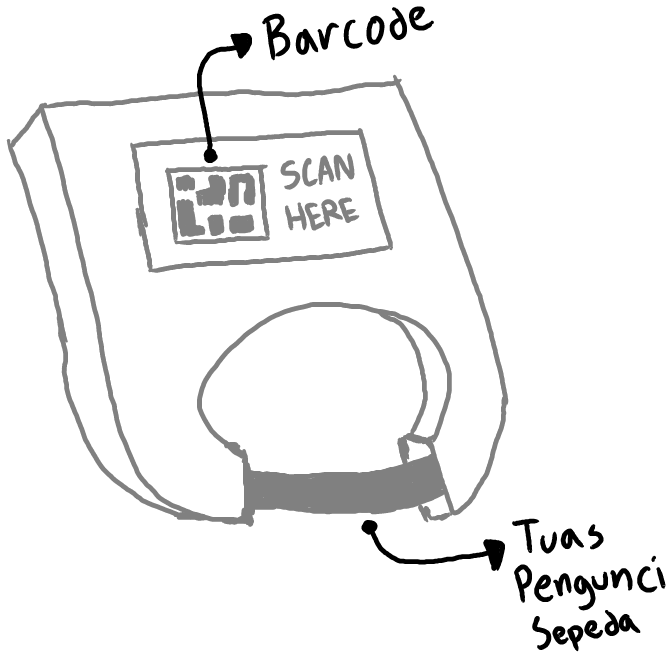 Barcode
SCAN
HERE
Tuas
Pengunci
Sepeda